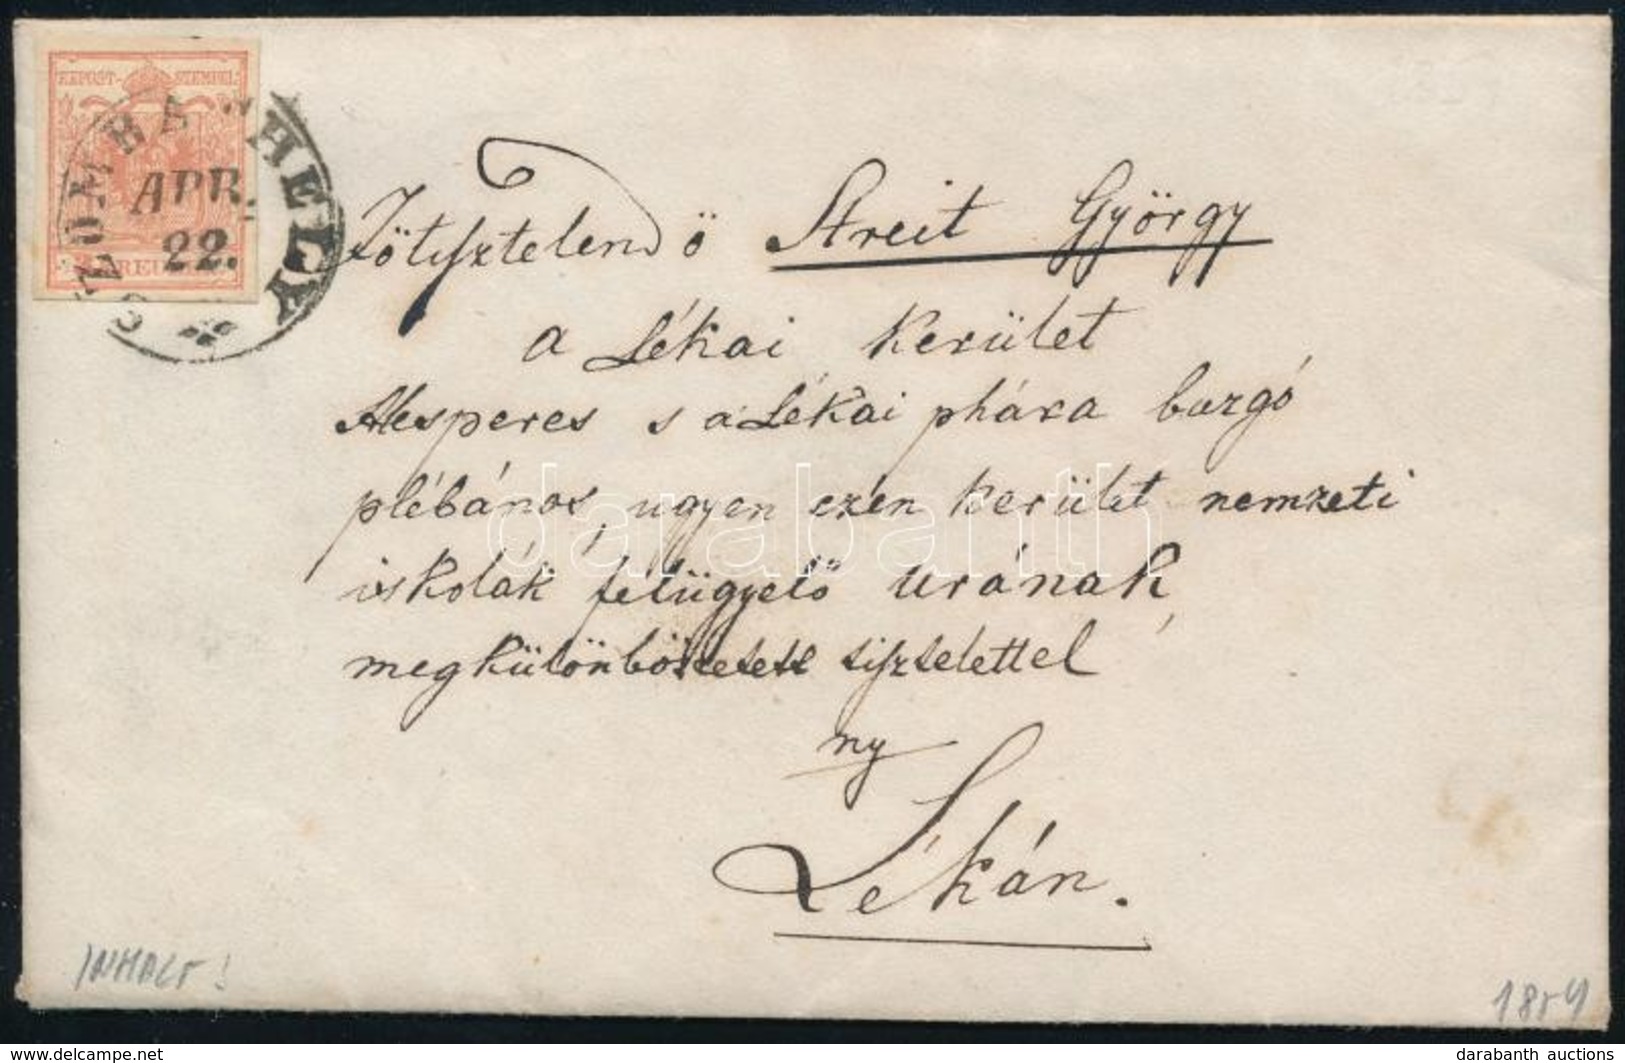 KKPOST-STEMPEL
SZOMBATHELY
APR.
22.
KREUZER
Főtisztelendő Streit György
a Lékai Kerület
Alesperes s a Lékai phára buzgó
plébános, ugyen ezen Kerület nemzeti
iskolák felügyelő urának,
megkülönböztetett tisztelettel
ny
Lékán.
INHALT!
1854
darabanth
delcampe.net
darabanth auctions